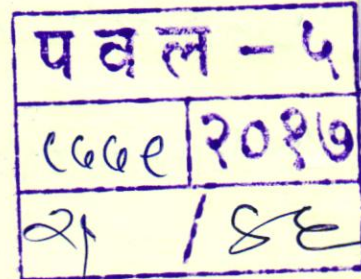 पवल - ५
८७७९ २०१७
/ ४६